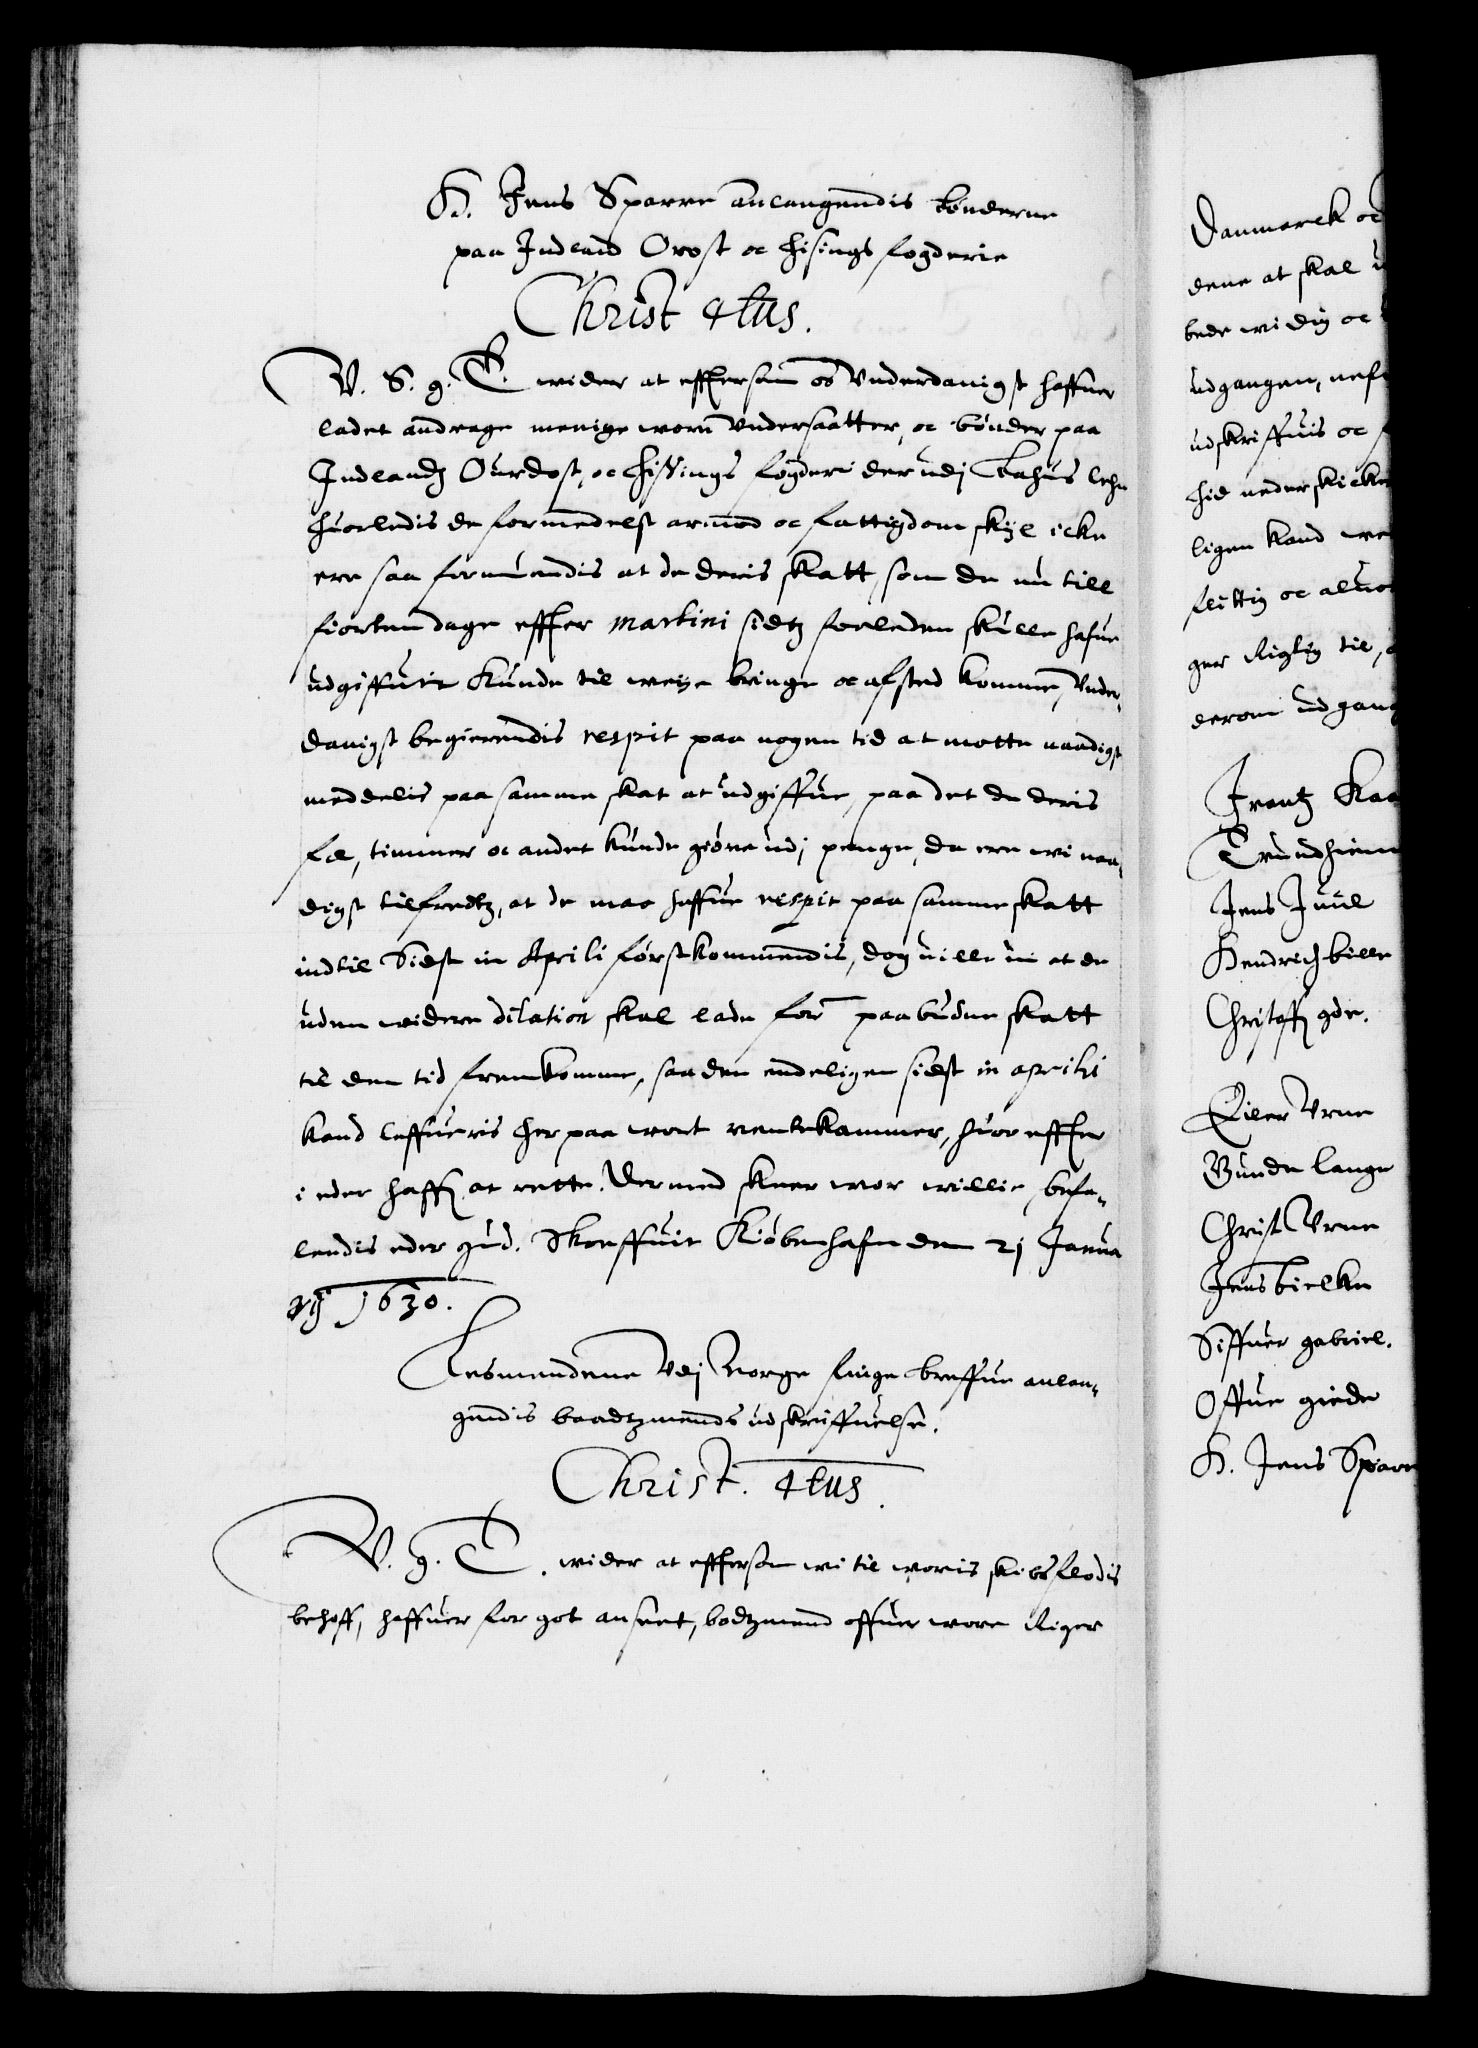 H. Jens Sparre anlangendis bønderne
paa Indland Orost oc hisings fogderie
Christ 4tus.
V. S. g. T. wider at efftersom os Vnderdanigst haffuer
ladet andrage menige worn Vndersaatter, oc bønder paa
Indlandz Ourdost, oc hissings fogderi der udj Bahus lehn
huorledis de formedelst armod oc fattigdom skyl icke
ere saa formuendis at de deris skatt, som de nu till
fiorten dage effter martini sidtz forleden skulle hafue
udgiffuit kunde til weye bringe oc afsted komme, Vnder-
danigst begierendis respit paa nogen tid at motte naadigst
meddelis paa samme skat at udgiffue, paa det de deris
fæ, timmer oc andet kunde giøre udj penge, da ere wi naa-
digst tilfredtz, at de maa haffue respit paa samme skatt
indtil Sidst in Aprili førstkommendis, dog uille ui at de
uden widere dilation skal lade for paabudne skatt
til den tid fremkomme, saa den endeligen sidst in aprili
kand leffueris her paa wort rentekammer, huor effter
i eder haff at rette. Dermed skeer wor willie, befa-
lendis eder gud. Skreffuit Kiøbenhafn den 21 Janua
rij 1630.
Lensmendene Vdj Norge finge breffue anlan-
gendis baadtzmends udskriffuelse.
Christ. 4tus.
V. g. T. wider at efftersom wi til woris skibsflodis
behoff, haffuer for got anseet, bodtzmend offuer wore Riger
Danmarck oc
dene at skal
bede wi dig oc
udgangen,
udskriffuis oc
hid nederskicke
ligen kand
flittig oc
ger Rigtig til,
derom udgang
Frantz Kaa
Trundhiem
Jens Juul
Hendrich bille
Christoff gde.
Eiler Vrne
Gunde lange
Christ Vrne
Jens bielke
Siffuer gabriel.
Offue giede
H. Jens Sparr